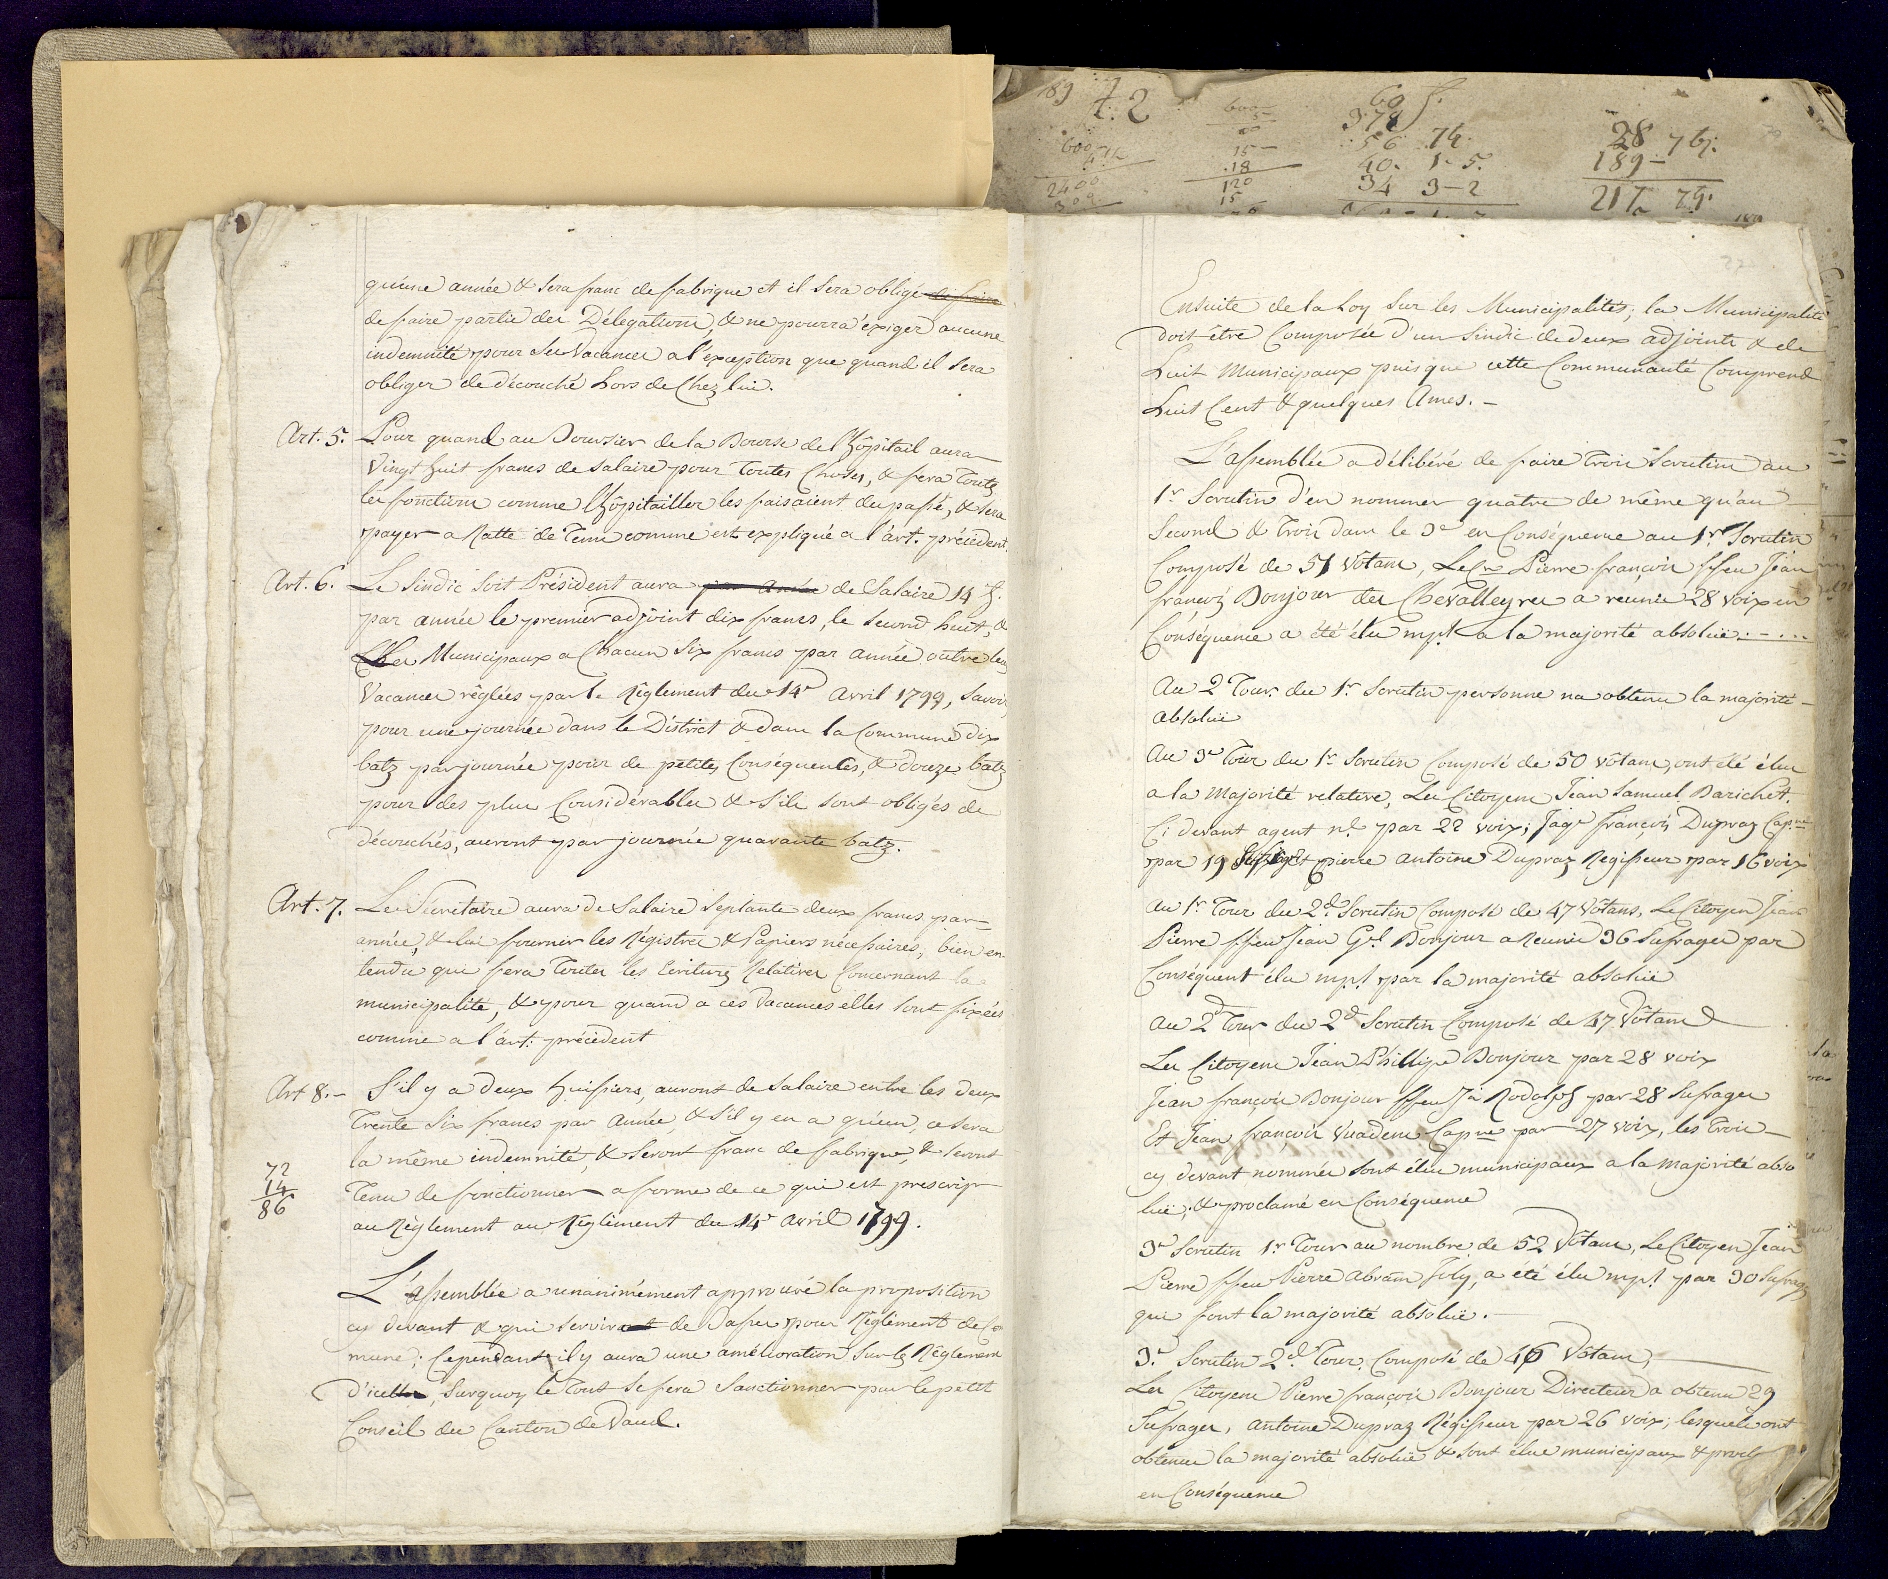 qu'une année & sera franc de fabrique et il sera obligé de faire
de faire partie des Délégations, & ne pourra éxiger aucune
indemnité pour ses Vacances a l'exception que quand il sera
obliger de découché hors de Chez lui.
Art. 5. Pour quand au Boursier de la Bourse de l'hôpitail aura
Vingt huit francs de salaire pour toutes Choses, & fera toutes
les fonctions comme l'hôpitailler les faisaient du passé, & sera
payer a Ratte de Tems comme est expliqué a l'art. précédent
Art. 6. Le Sindic soit Président aura par Année de Salaire 14 f.
par année le premier adjoint dix francs, le second huit, &
Les Municipaux a Chacun Six francs par année outre les
Vacances réglées par le Réglement du 14e avril 1799, Savoir,
pour une journée dans le District & dans la Commune dix
batz par journée pour de petites Conséquences, & douze batz
pour des plus Considérables & s'ils sont obligés de
découchés, auront par journée quarante batz.
Art. 7. Le Secretaire aura de Salaire Septante deux francs par
année, & lui fournir les Régistres & Papiers nécessaires, bien en
tendu qui fera toutes les Ecritures Relatives Concernant la
municipalité, & pour quand a ces Vacances elles sont fixées
comme a l'art. précédent
Art 8. S'il y a deux huissiers, auront de salaire entre les deux
Trente Six francs par Année, & s'il y en a qu'un, ce sera
la même indemnité, & seront franc de fabrique, & seront
72
14
86
Tenu de fonctionner a forme de ce qui est prescript
au Réglement au Réglement du 14e avril 1799.
L'assemblée a unanimément approuvé la proposition
cy devant & qui servira de Base pour Réglement de Co
mune; Cependant il y aura une amélioration Sur le Réglement
d'icelle, Surquoy le Tout se fera Sanctionner par le petit
Conseil du Canton de Vaud.
189 42
600
600
2400
15
18
120
15
60 f.
378
56 74.
40. 1-5.
34 3-2
28 76.
189-
217 76.
27
Ensuite de la Loy Sur les Municipalités; la Municipalité
doit être Composée d'un Sindic de deux adjoints & de
huit Municipaux puisque cette Communauté Comprend
huit Cent & quelques Ames. -
L'assemblée a délibéré de faire trois Scrutins au
1r Scrutin d'en nommer quatre de même qu'au
Second & trois dans le 3e en Conséquence au 1r Scrutin
Composé de 51 Votans, Le Cn Pierre françois ffeu Jean
françois Bonjour des Chevalleyres a reunie 28 voix en
Conséquence a été élu mpl a la majorité absolüe. - ...
Au 2 Tour du 1r Scrutin personne na obtenu la majorité
absolüe
Au 3e Tour du 1r Scrutin Composé de 50 votans, ont été élus
a la majorité relative, Les Citoyens Jean Samuel Barichet
Ci devant agent nl par 22 voix; Jaqe françois Dupraz Capne
par 19 & pierre antoine Dupraz Régisseur par 16 voix
Au 1r Tour du 2d Scrutin Composé de 47 Vôtans, Le Citoyen Jean
Pierre ffeu Jean Gel Bonjour a Reunie 36 Sufrages par
Conséquent élu mpl par la majorité absolüe
Au 2d Tour du 2d Scrutin Composé de 47 Vôtans
Les Citoyens Jean Phillipe Bonjour par 28 voix
Jean françois Bonjour ffeu Jn Rodolph par 28 Sufrages
Et Jean françois Vuadens Capne par 27 voix, les trois
cy devant nommés sont élus municipaux a la majorité abso
lüe, & proclamé en Conséquence
3e Scrutin 1r Tour au nombre de 52 Vôtans, Le Citoyen Jean
Pierre ffeu Pierre Abram Joly, a été élu mpl par 30 Sufrages
qui font la majorité absolüe. -
3e Scrutin 2d Tour, Composé de 46 Vôtans,
Les Citoyens Pierre françois Bonjour Directeur a obtenu 29
Sufrages, Antoine Dupraz Régisseur par 26 voix, lesquels ont
obtenu la majorité absolüe & sont élus municipaux & procl
en Conséquence